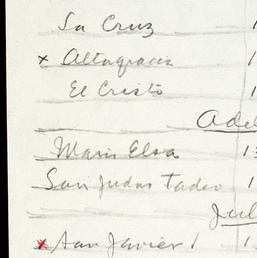 La Cruz 1
x Altagracia 1
El Cristo 1
Adel
Maria Elsa 13
San Judas Tadeo 1
Jul
x San Javier 1 1